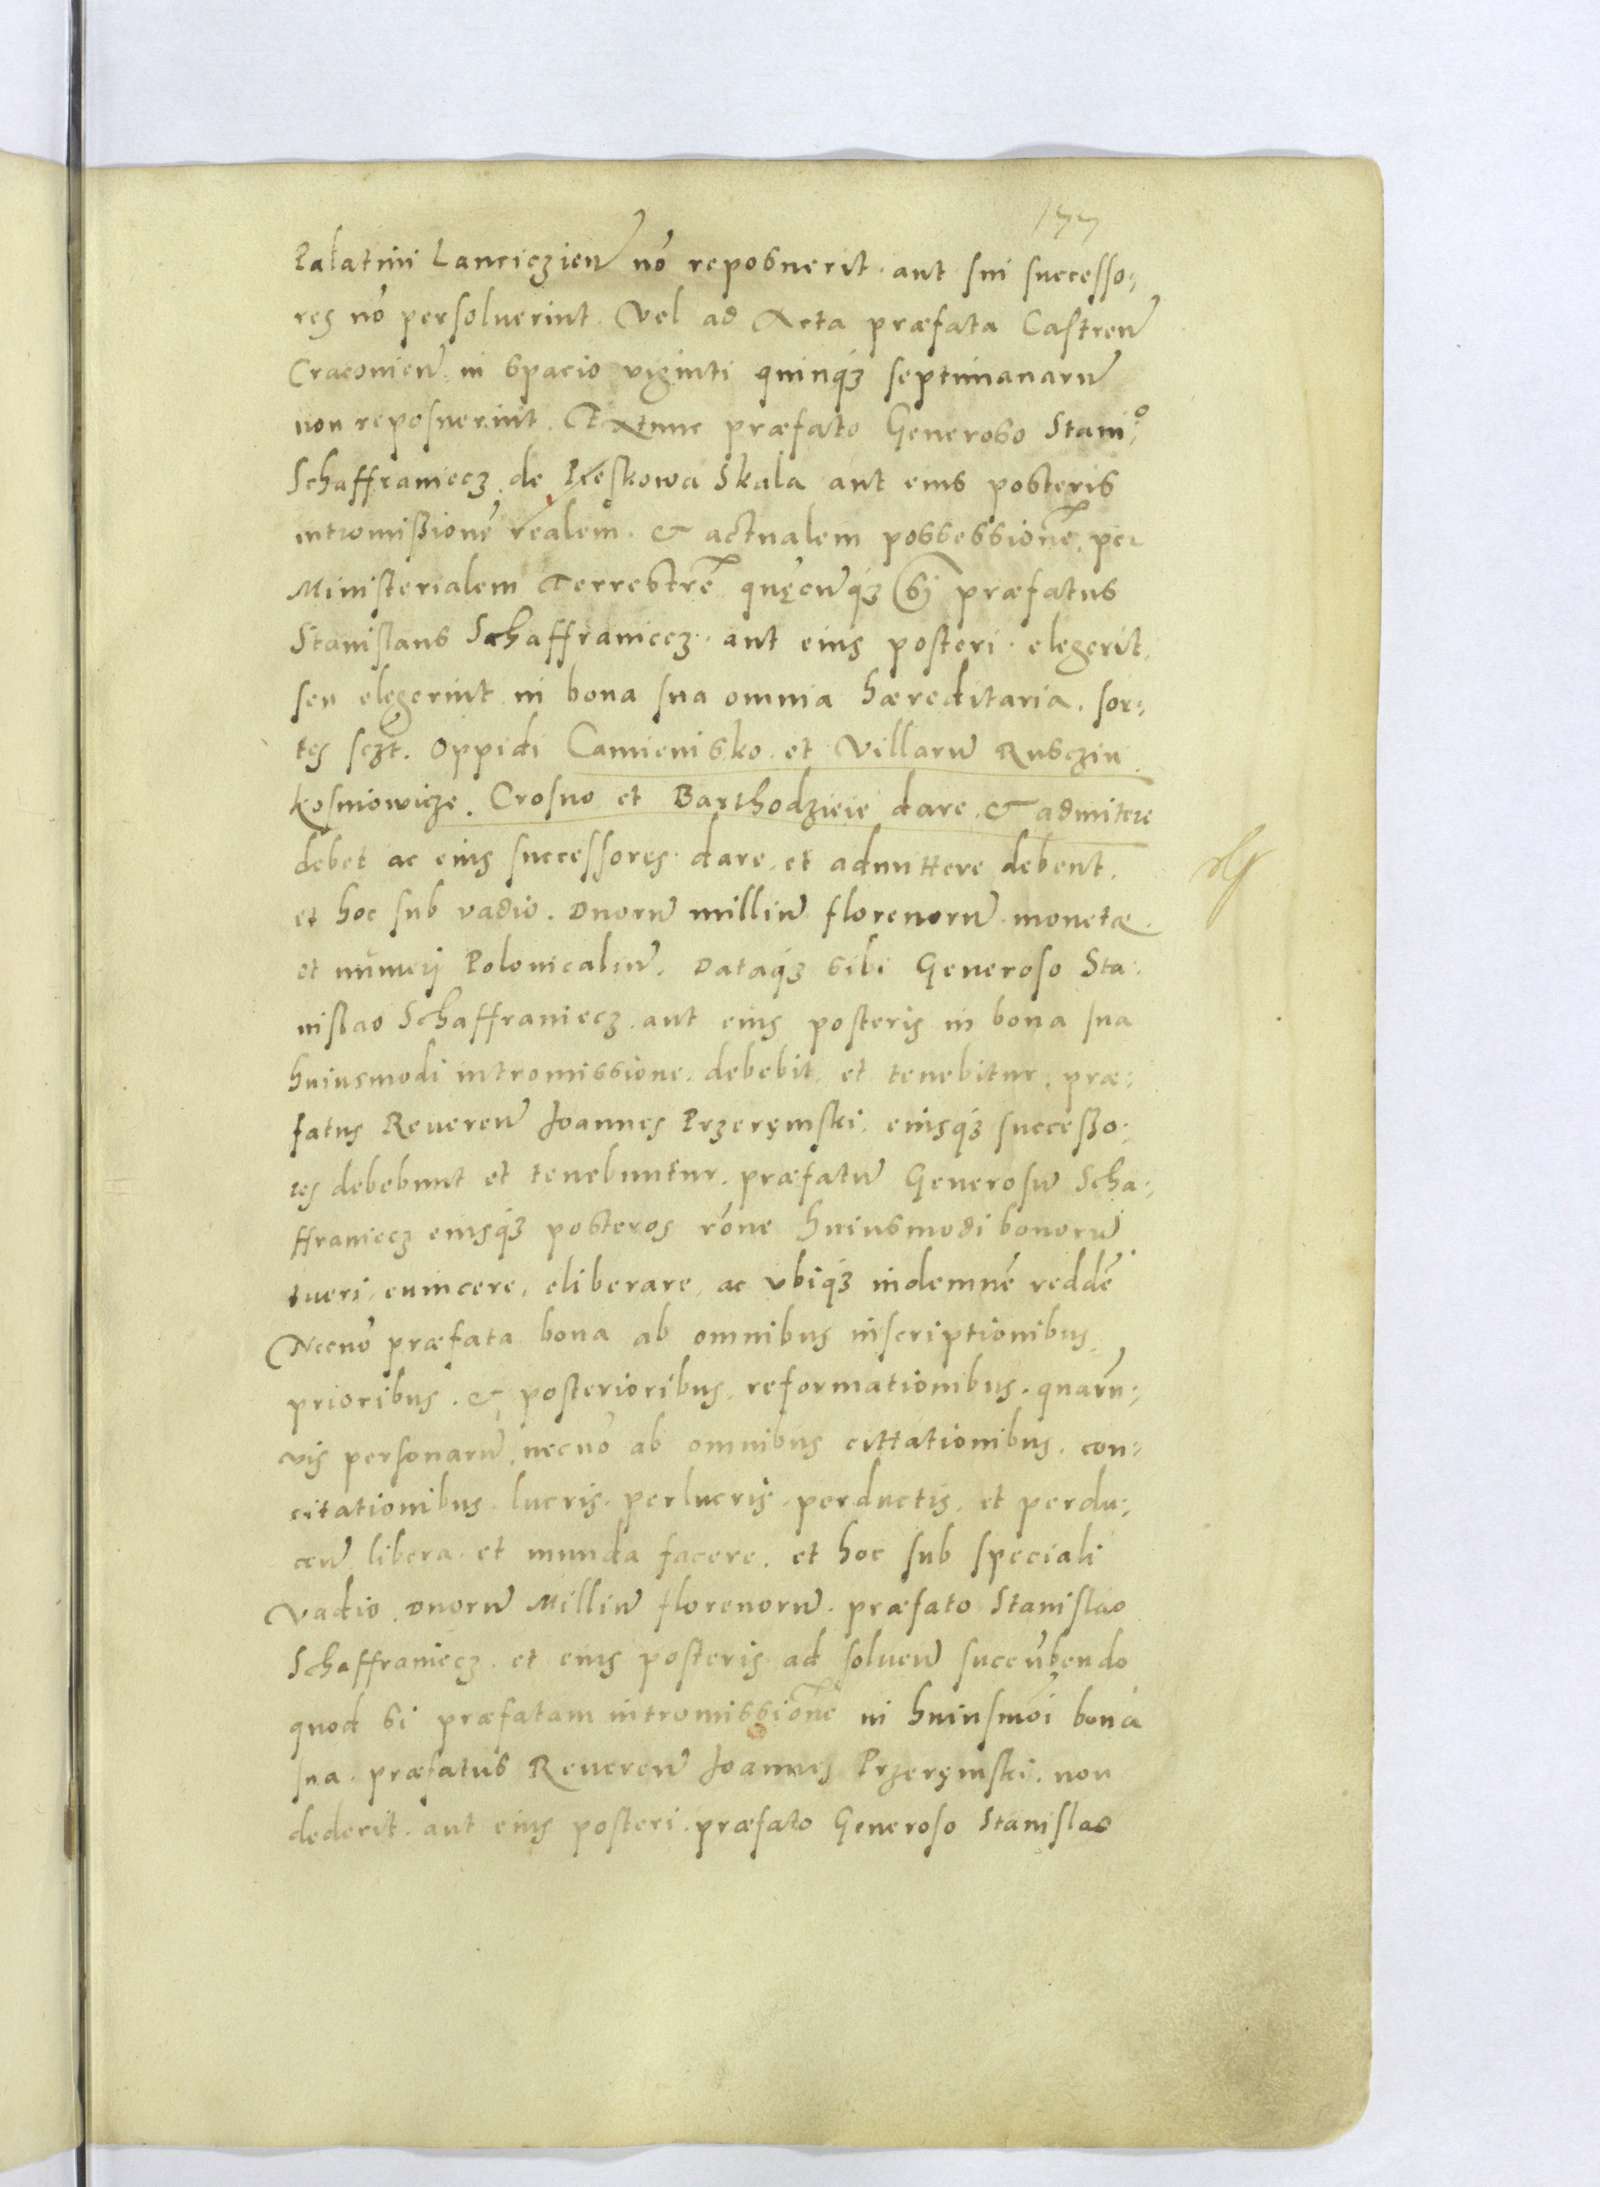 177
Palatini Lancicziен̃ nō reposuerit. aut sui successo:
res nō persoluerint. Vel ad Acta præfata Castreñ
Cracouieñ. in spacio viginti quinq́ȝ septimanarū
non reposuerint. Extunc præfato Generoso Staniº:
Schaffraniecz de Pieskowa Skala aut eius posteris
intromißionē realem. & actualem possessionē. per
Ministerialem Terrestrē quęcūq́ȝ sibj præfatus
Stanislaus Schaffraniecz. aut eius posteri. elegerit.
seu elegerint in bona sua omnia hæreditaria. sor:
tes sczt. Oppidi Camiensko. et Villarū Rusczin
Kosniowicze. Crosno et Barthodzieie dare. & admitere
debet ac eius successores. dare. et admittere debent.
et hoc sub vadio. Duorū milliū florenorū. monetæ.
et numerj Polonicaliū. Dataq́ȝ sibi Generoso Sta:
nislao Schaffraniecz. aut eius posteris in bona sua
huiusmodi intromissione. debebit. et tenebitur. præ:
fatus Reuereñ Joannes Przeręmski. eiusq́ȝ succeßo:
res debebunt et tenebuntur. præfatū Generosū Scha:
ffraniecz eiusq́ȝ posteros rōne huiusmodi bonorū
tueri. euincere. eliberare. ac vbiq́ȝ indemnē reddē
Necnō præfata bona ab omnibus inscriptionibus.
prioribus. & posterioribus. reformationibus. quarū:
vis personarū. necnō ab omnibus cittationibus. con:
citationibus. lucris. perlucris. perductis. et perdu:
ceñ libera. et munda facere. et hoc sub speciali
Vadio. Duorū Milliū florenorū. præfato Stanislao
Schaffraniecz. et eius posteris ad solueñ succūbendo
quod si præfatam intromissionē in huiusmōi bona
sua. præfatus Reuereñ Joannes Przeręmski. non
dederit. aut eius posteri. præfato Generoso Stanislao